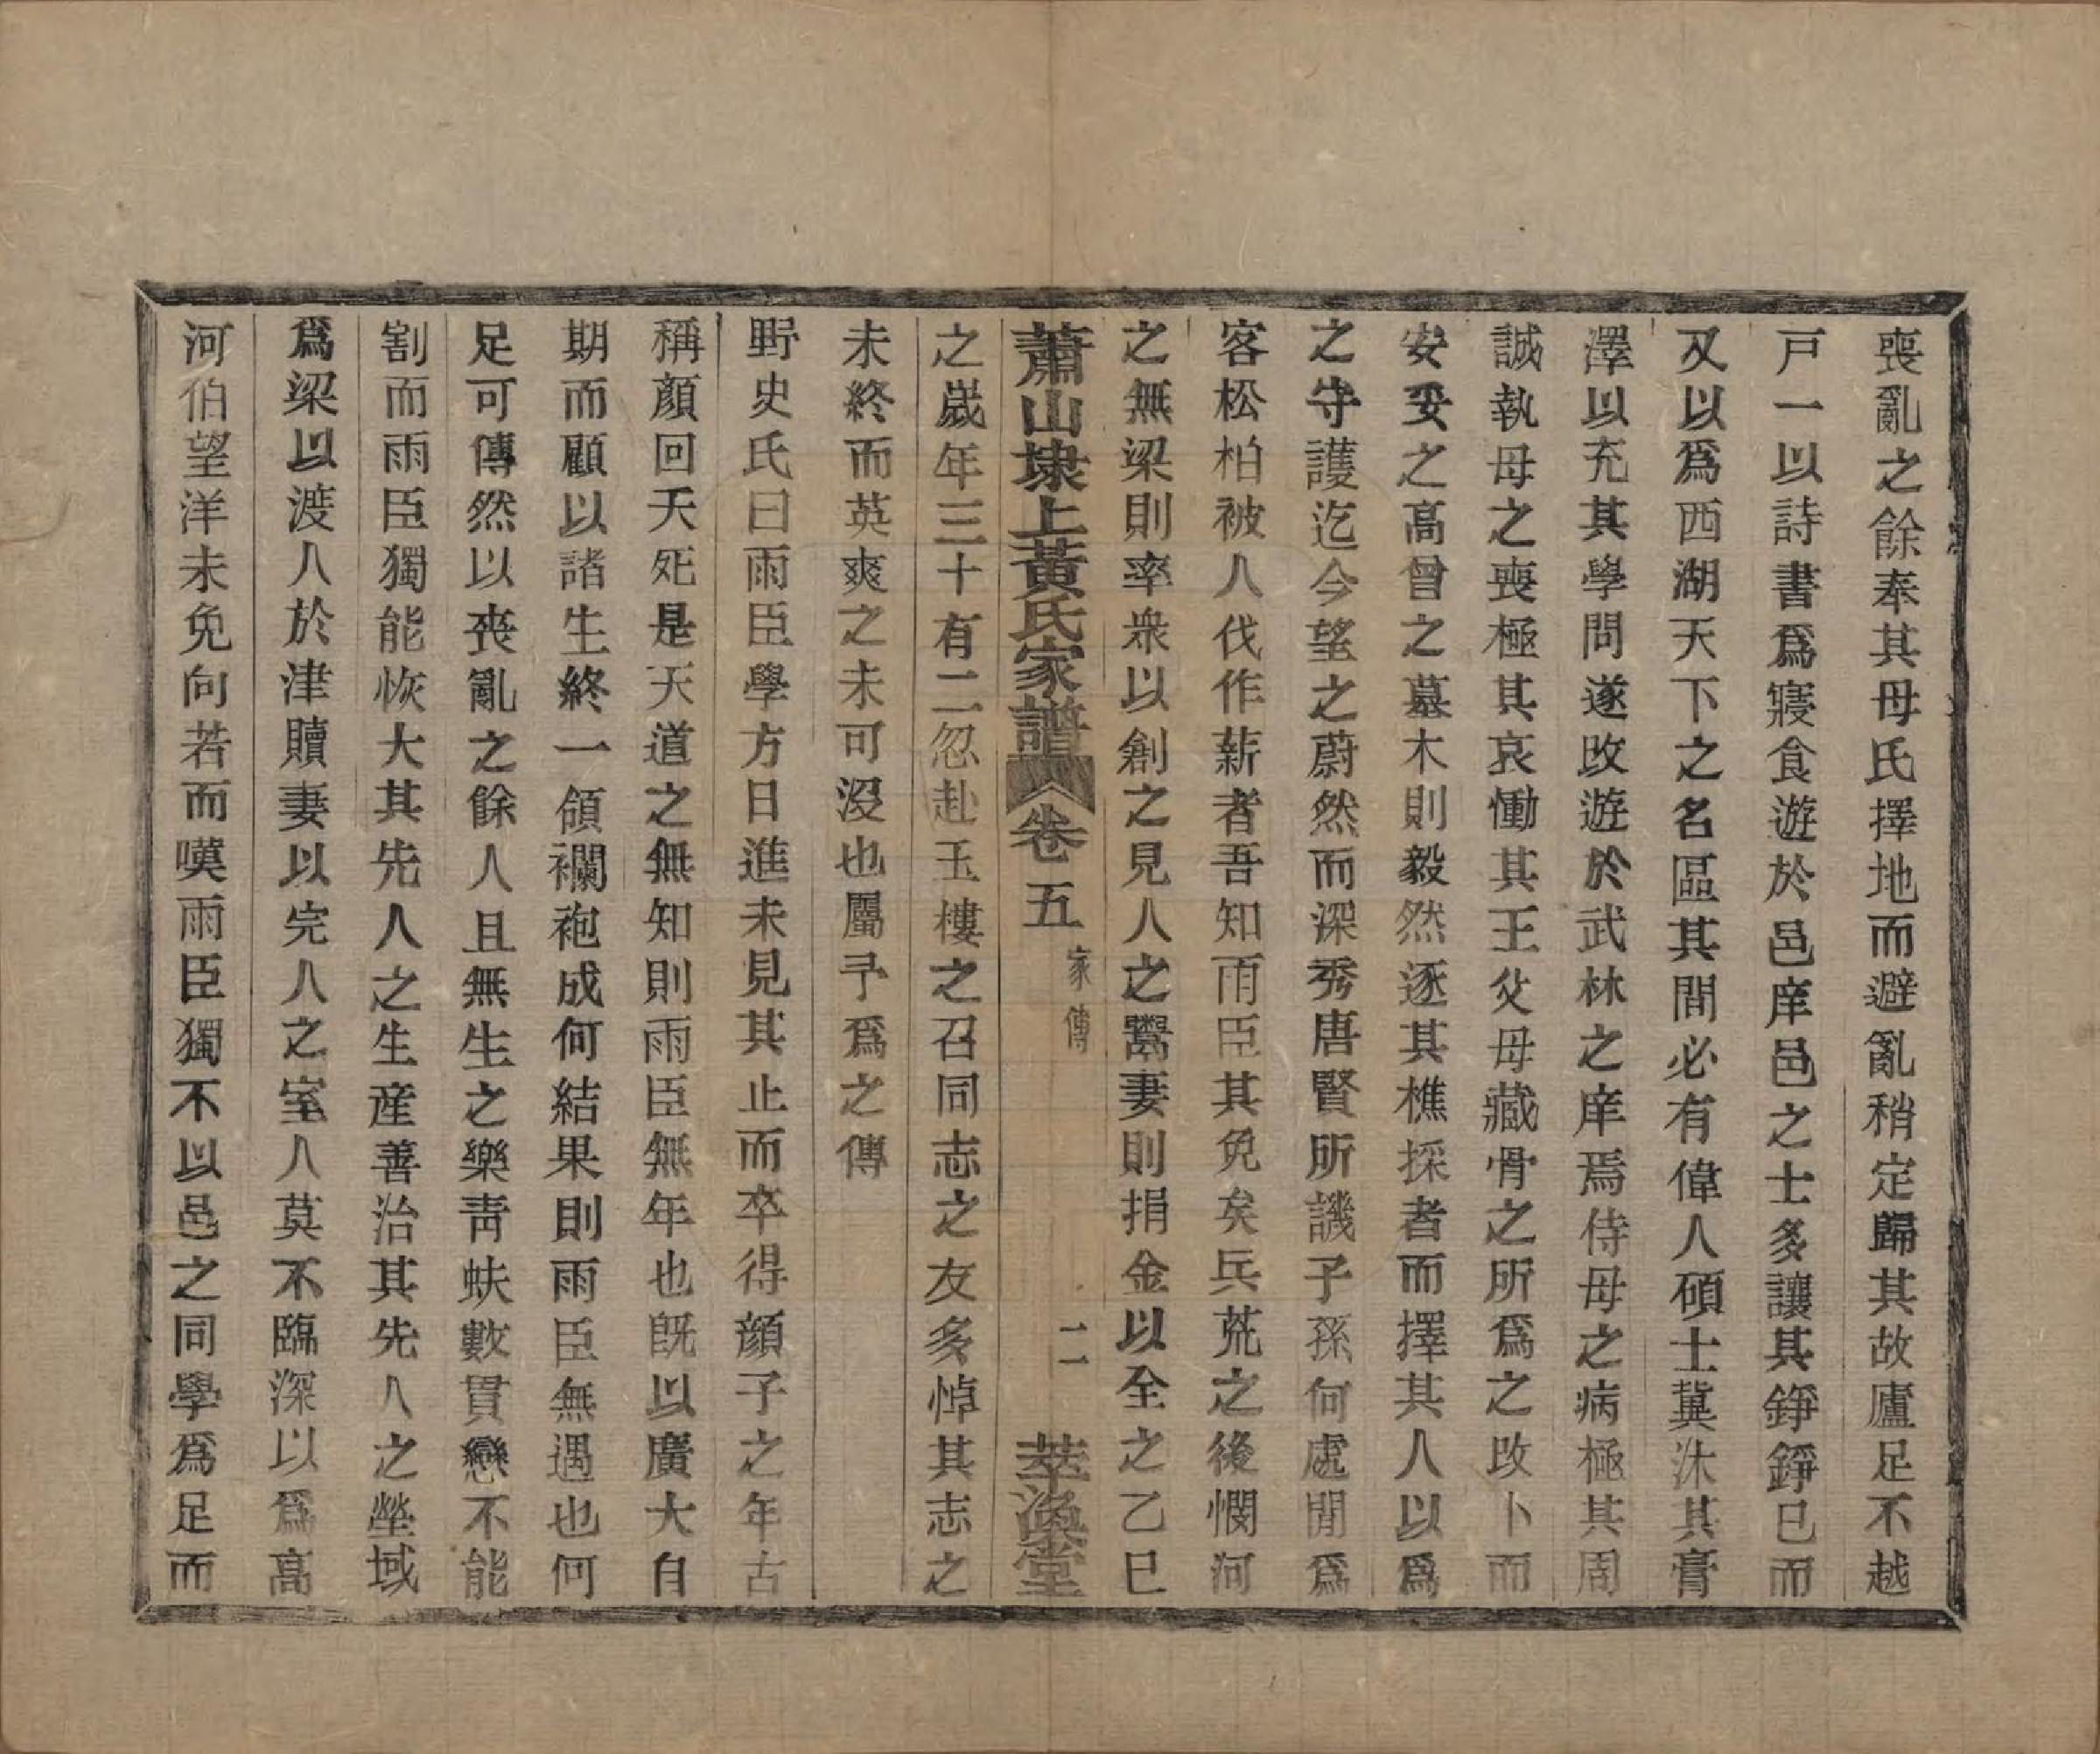 喪亂之餘奉其母氏擇地而避亂稍定歸其故廬足不越
戸一以詩書爲寢食遊於邑庠邑之士多讓其錚錚已而
又以爲西湖天下之名區其間必有偉人碩士冀沐其膏
澤以充其學問遂改遊於武林之庠焉侍母之病極其周
誠執母之喪極其哀慟其王父母藏骨之所爲之改卜而
安妥之高曾之墓木則毅然逐其樵採者而擇其人以爲
之守護迄今望之蔚然而深秀唐賢所譏子孫何處閒爲
客松柏被人伐作薪者吾知雨臣其免矣兵荒之後憫河
之無梁則率衆以創之見人之鬻妻則捐金以全之乙巳
蕭山埭上黃氏家譜 卷五 家傳 二 萃渙堂
之嵗年三十有二忽赴玉樓之召同志之友多悼其志之
未終而英爽之未可沒也屬予爲之傳
野史氏曰雨臣學方日進未見其止而卒得顔子之年古
稱顔回夭死是天道之無知則雨臣無年也旣以廣大自
期而顧以諸生終一領襴袍成何結果則雨臣無遇也何
足可傳然以喪亂之餘人且無生之樂靑蚨數貫戀不能
割而雨臣獨能恢大其先人之生產善治其先人之塋域
爲梁以渡人於津贖妻以完人之室人莫不臨深以爲高
河伯望洋未免向若而嘆雨臣獨不以邑之同學爲足而